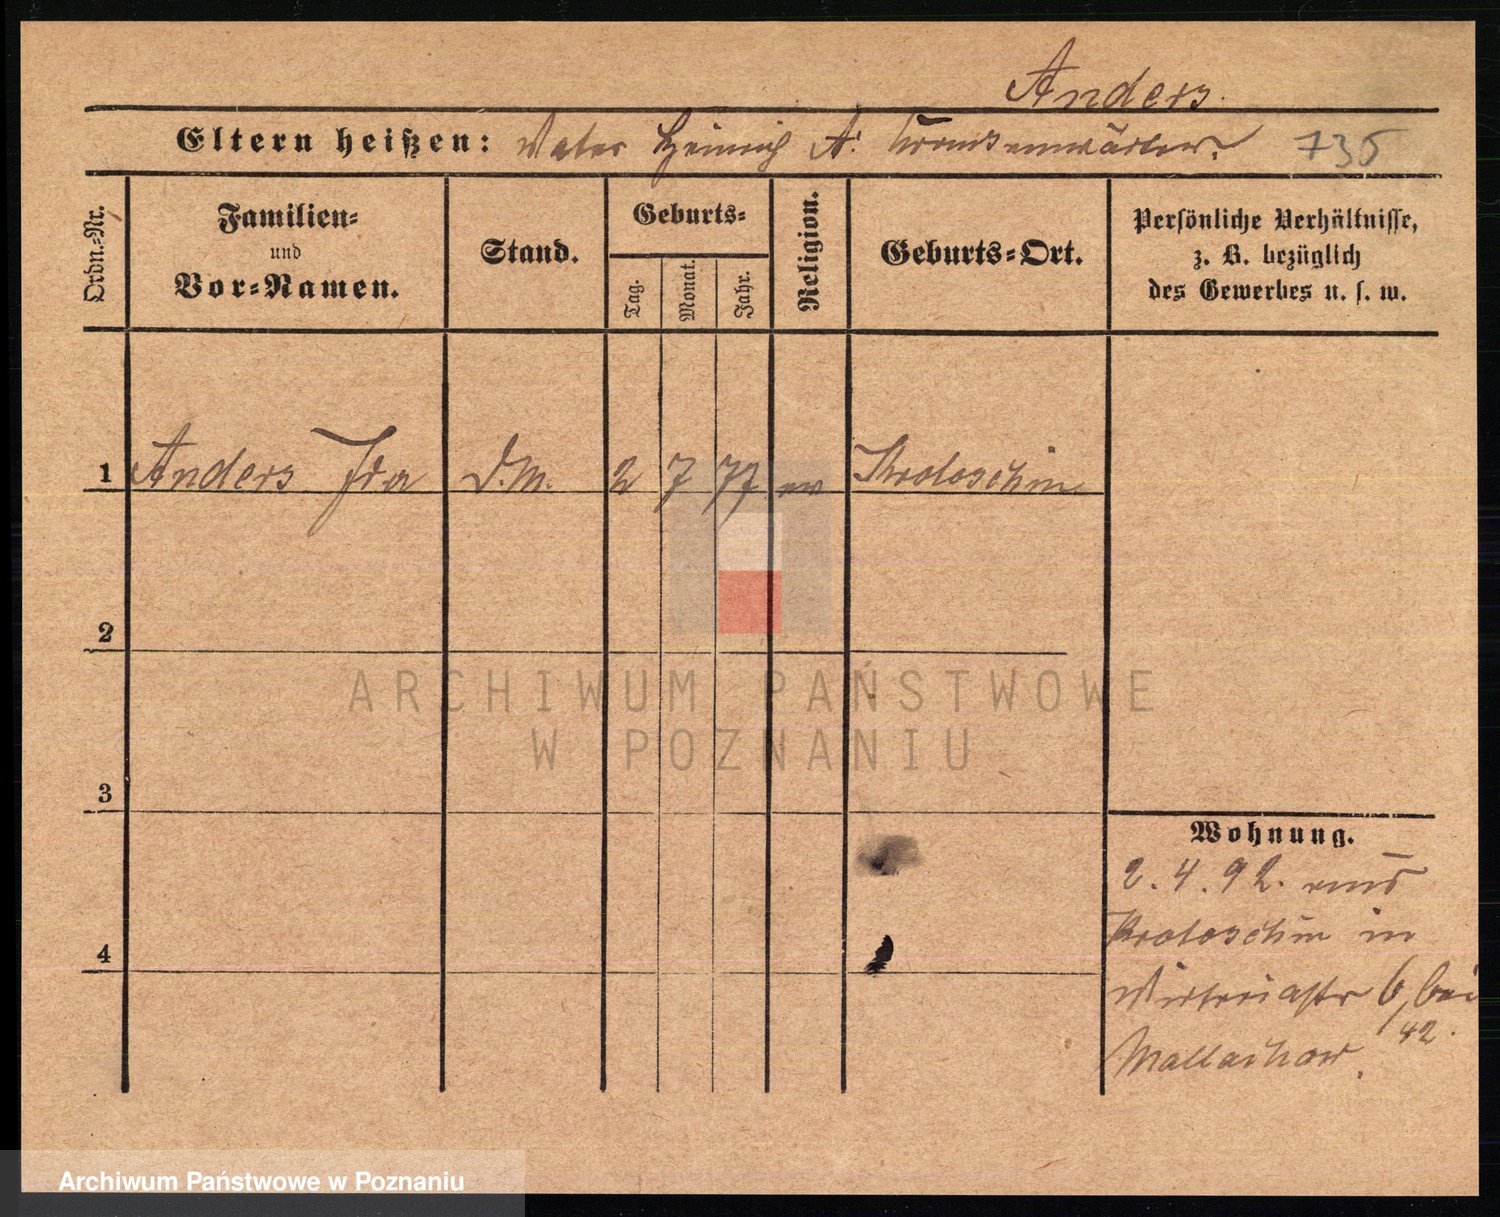 Anders.
Eltern heißen: Vater Heinrich A. 735
Ordn.-Nr.
Familien-
und
Vor-Namen.
Stand.
Geburts-
Tag.
Monat.
Jahr.
Religion.
Geburts-Ort.
Persönliche Verhältnisse,
z. B. bezüglich
des Gewerbes u. s. w.
1 Anders Ida D.M. 2 7 77 ev Krotoschin
2
3
4
Wohnung.
2.4.92. aus
Krotoschin in
6, bei
42.
Mallachow.
ARCHIWUM PAŃSTWOWE
W POZNANIU
Archiwum Państwowe w Poznaniu